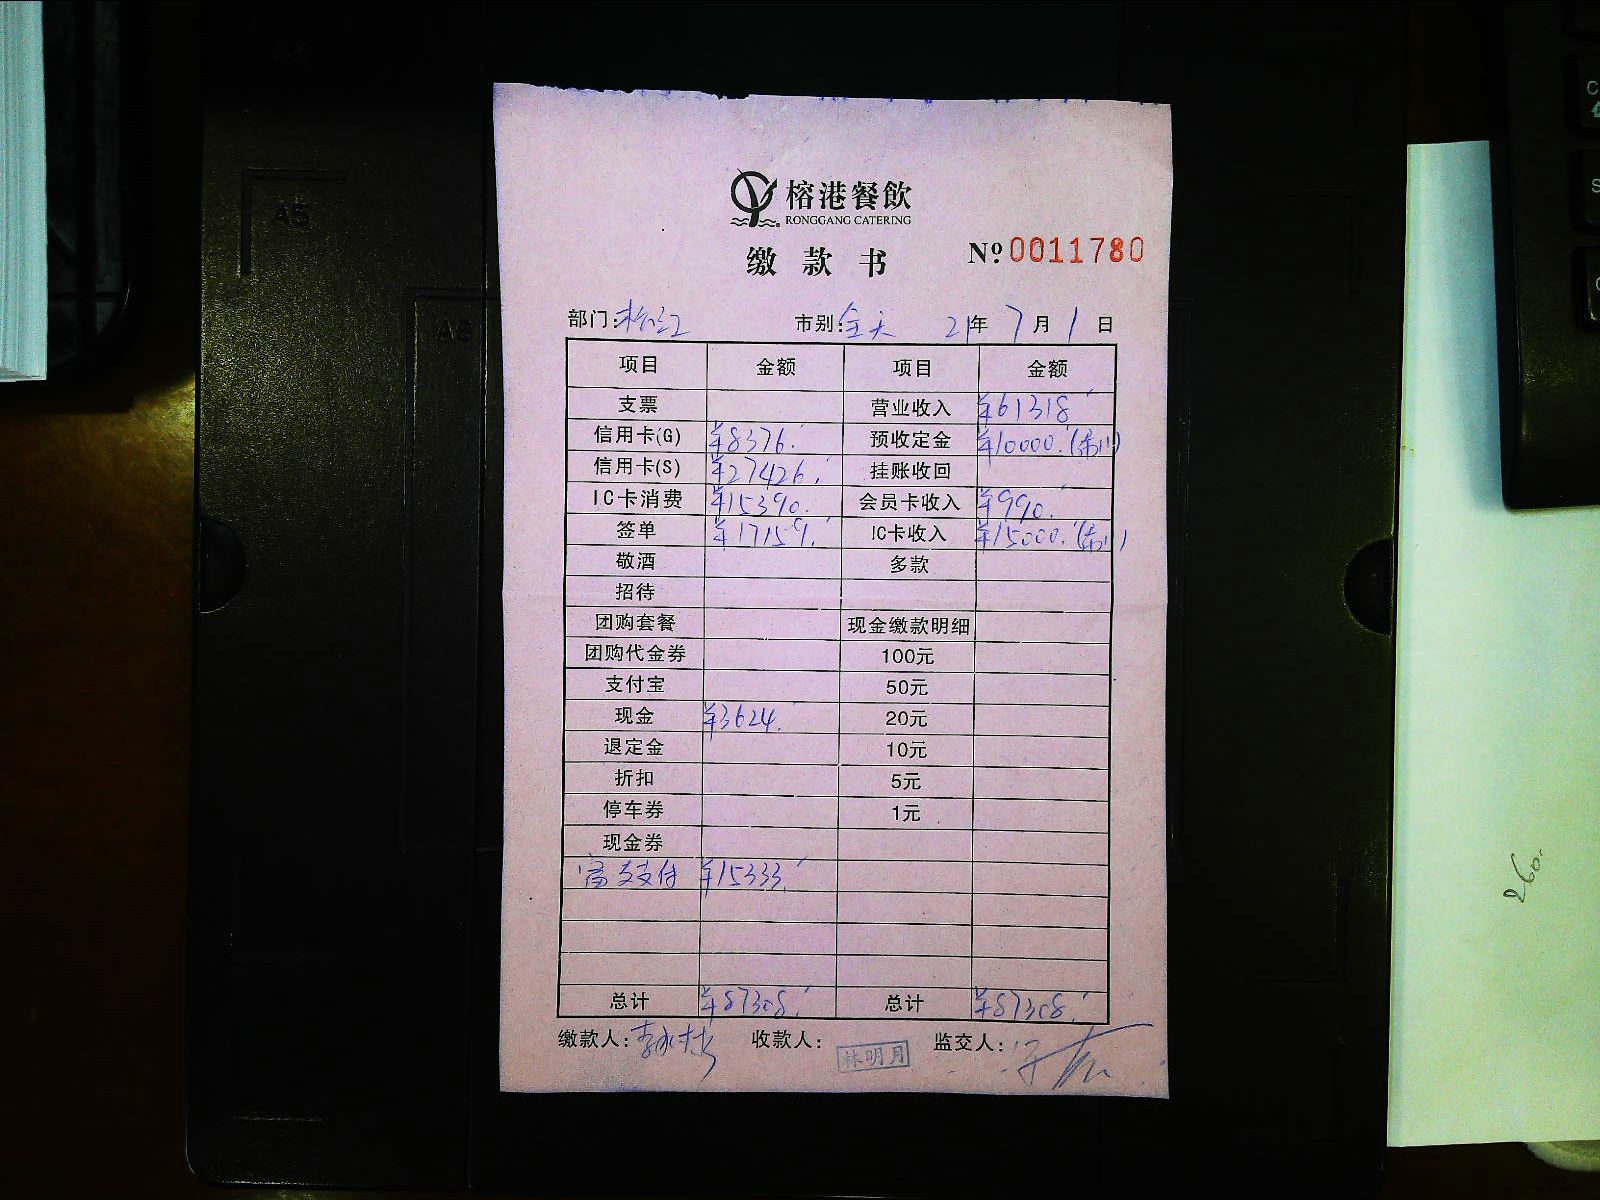 榕港餐飲
RONGGANG CATERING
缴款书
№ 0011780
部门: 市别:全天 21年7月1日
项目 金额 项目 金额
支票 营业收入 ¥61318
信用卡(G) ¥8376. 预收定金 ¥10000.
信用卡(S) ¥27426. 挂账收回
IC卡消费 ¥15390. 会员卡收入 ¥990.
签单 ¥17159. IC卡收入 ¥15000.
敬酒 多款
招待
团购套餐 现金缴款明细
团购代金券 100元
支付宝 50元
现金 ¥3624. 20元
退定金 10元
折扣 5元
停车券 1元
现金券
支付 ¥15333.
总计 ¥87308. 总计 ¥87308.
缴款人: 收款人: 林明月 监交人:
A5
A6
260.